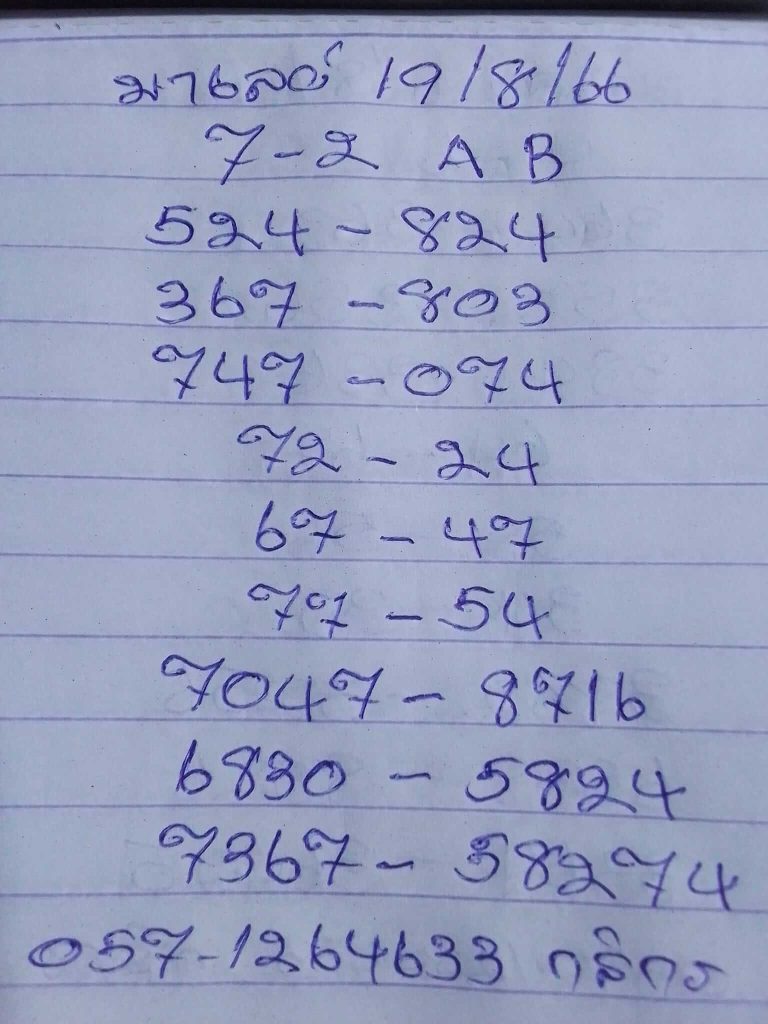 มาเลย์ 19/8/66
7-2 A B
524-824
367-803
747-074
72-24
67-47
77-54
7047-8716
6830-5824
7367-58274
057-1264633 กสิกร